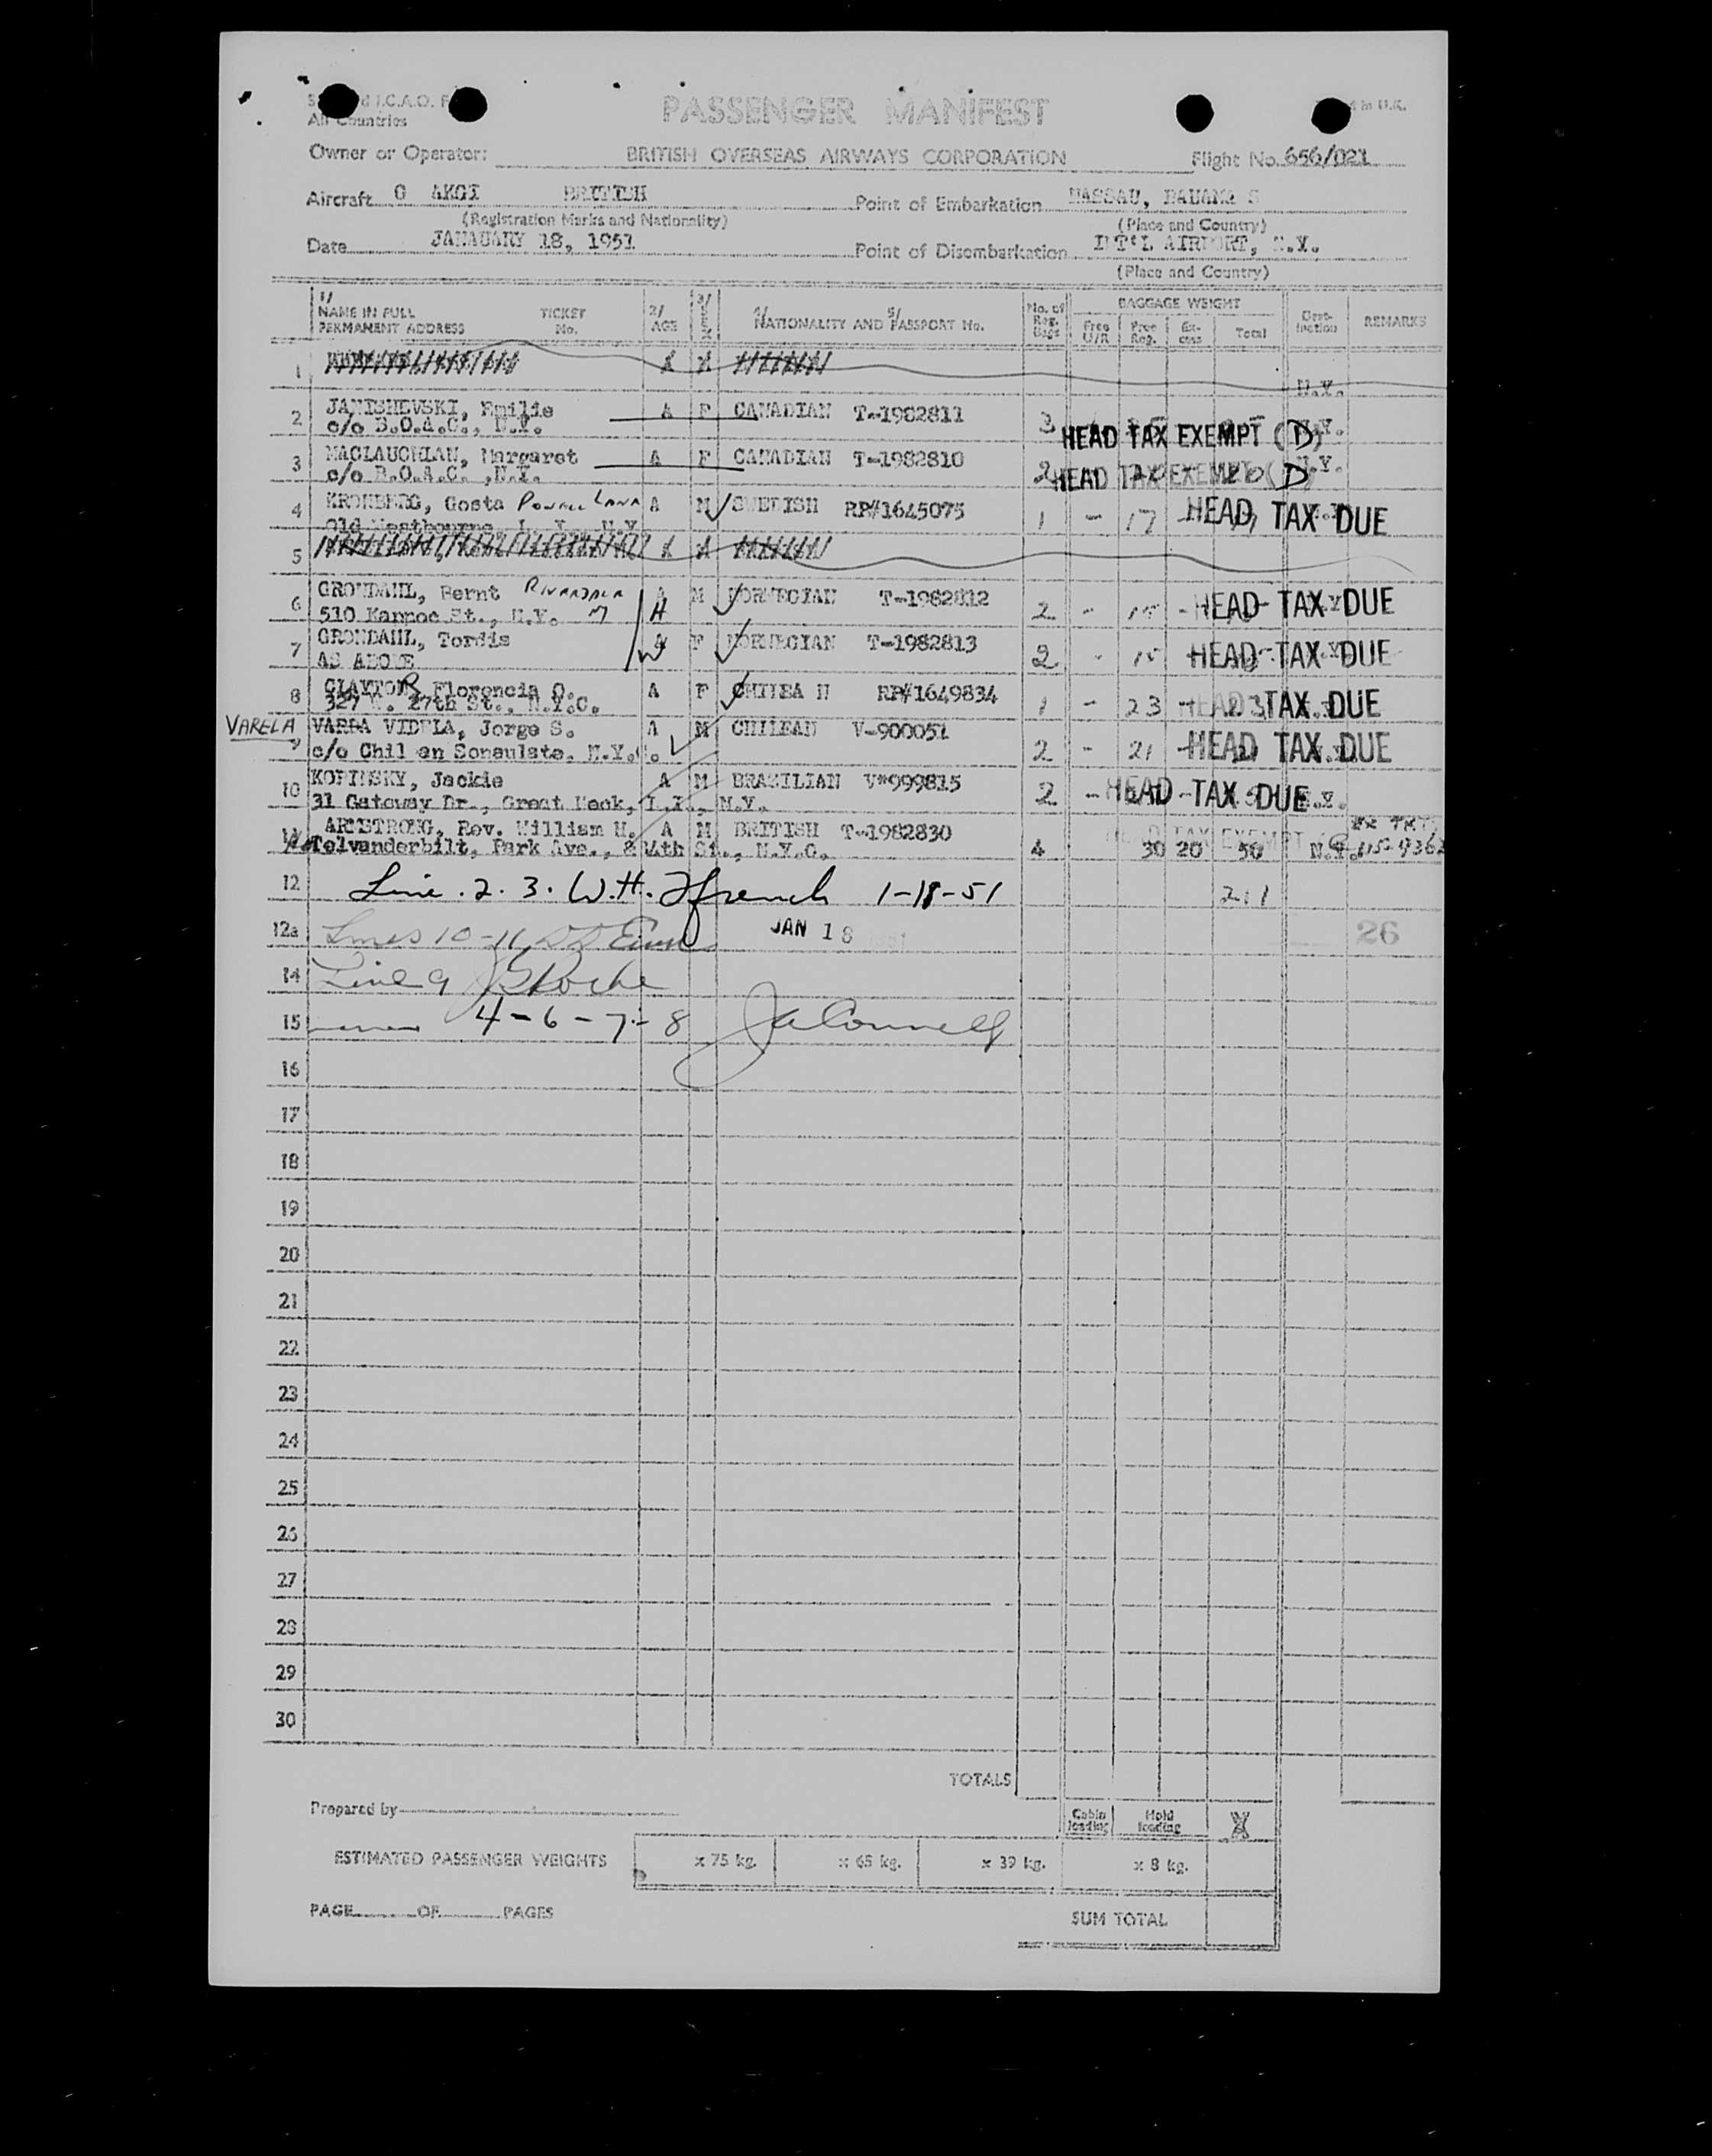 I.C.A.O.
All Countries
PASSENGER MANIFEST
in U.K.
Owner or Operator: BRITISH OVERSEAS AIRWAYS CORPORATION Flight No. 656/021
Aircraft G AKGI BRITISH Point of Embarkation NASSAU, BAHAMA S
(Registration Marks and Nationality) (Place and Country)
Date JANAUARY 18, 1951 Point of Disembarkation INT'L AIRPORT, N.Y.
(Place and Country)
1/ NAME IN FULL PERMANENT ADDRESS TICKET No. 2/ AGE 3/ SEX 4/ 5/ NATIONALITY AND PASSPORT No. No. of Reg. Bags BAGGAGE WEIGHT Free U/R Free Reg. Ex-cess Total Dest-ination REMARKS
1 N.Y.
2 JANISHEVSKI, Emilie A F CANADIAN T-1982811 3 N.Y.
c/o B.O.A.C., N.Y. HEAD TAX EXEMPT (D)
3 MACLAUCHLAN, Margaret A F CANADIAN T-1982810 2 N.Y.
c/o B.O.A.C. ,N.Y. HEAD TAX EXEMPT (D)
4 KRONBERG, Gosta A M SWEDISH RP#1645075 1 - 17 - HEAD TAX DUE
Old Westbourne, L. I., N.Y.
5
6 GRONDAHL, Bernt RIVERDALE A M NORWEGIAN T-1982812
510 Kappoc St., N.Y. 2 - 15 - HEAD TAX DUE
7 GRONDAHL, Tordis A F NORWEGIAN T-1982813
AS ABOVE 2 - 15 HEAD TAX DUE
8 CLAYTON, Florencia O. A F CHILEA N RP#1649834
327 W. 27th St., N.Y.C. 1 - 23 - HEAD TAX DUE
VARELA VARDA VIDELA, Jorge S. A M CHILEAN V-900051
9 c/o Chil ean Consulate, N.Y.C. 2 - 21 - HEAD TAX DUE
10 KOPINSKY, Jackie A M BRAZILIAN V*999815
31 Gateway Dr., Great Neck, L.I., N.Y. 2 - HEAD TAX DUE N.Y.
ARMSTRONG, Rev. William H. A M BRITISH T-1982830
Telvanderbilt, Park Ave., & 34th St., N.Y.C. 4 HEAD TAX EXEMPT 30 20 50 N.Y.
12 Line . 2 . 3 . W.H. Ffrench 1-18-51 211
12a Lines 10-11 JAN 18 26
14 Line 9 Roche
15 4-6-7-8 JaConnell
16
17
18
19
20
21
22
23
24
25
26
27
28
29
30
TOTALS
Prepared by
Cabin loading Hold loading
ESTIMATED PASSENGER WEIGHTS x 75 kg. x 65 kg. x 39 kg. x 8 kg.
PAGE OF PAGES
SUM TOTAL